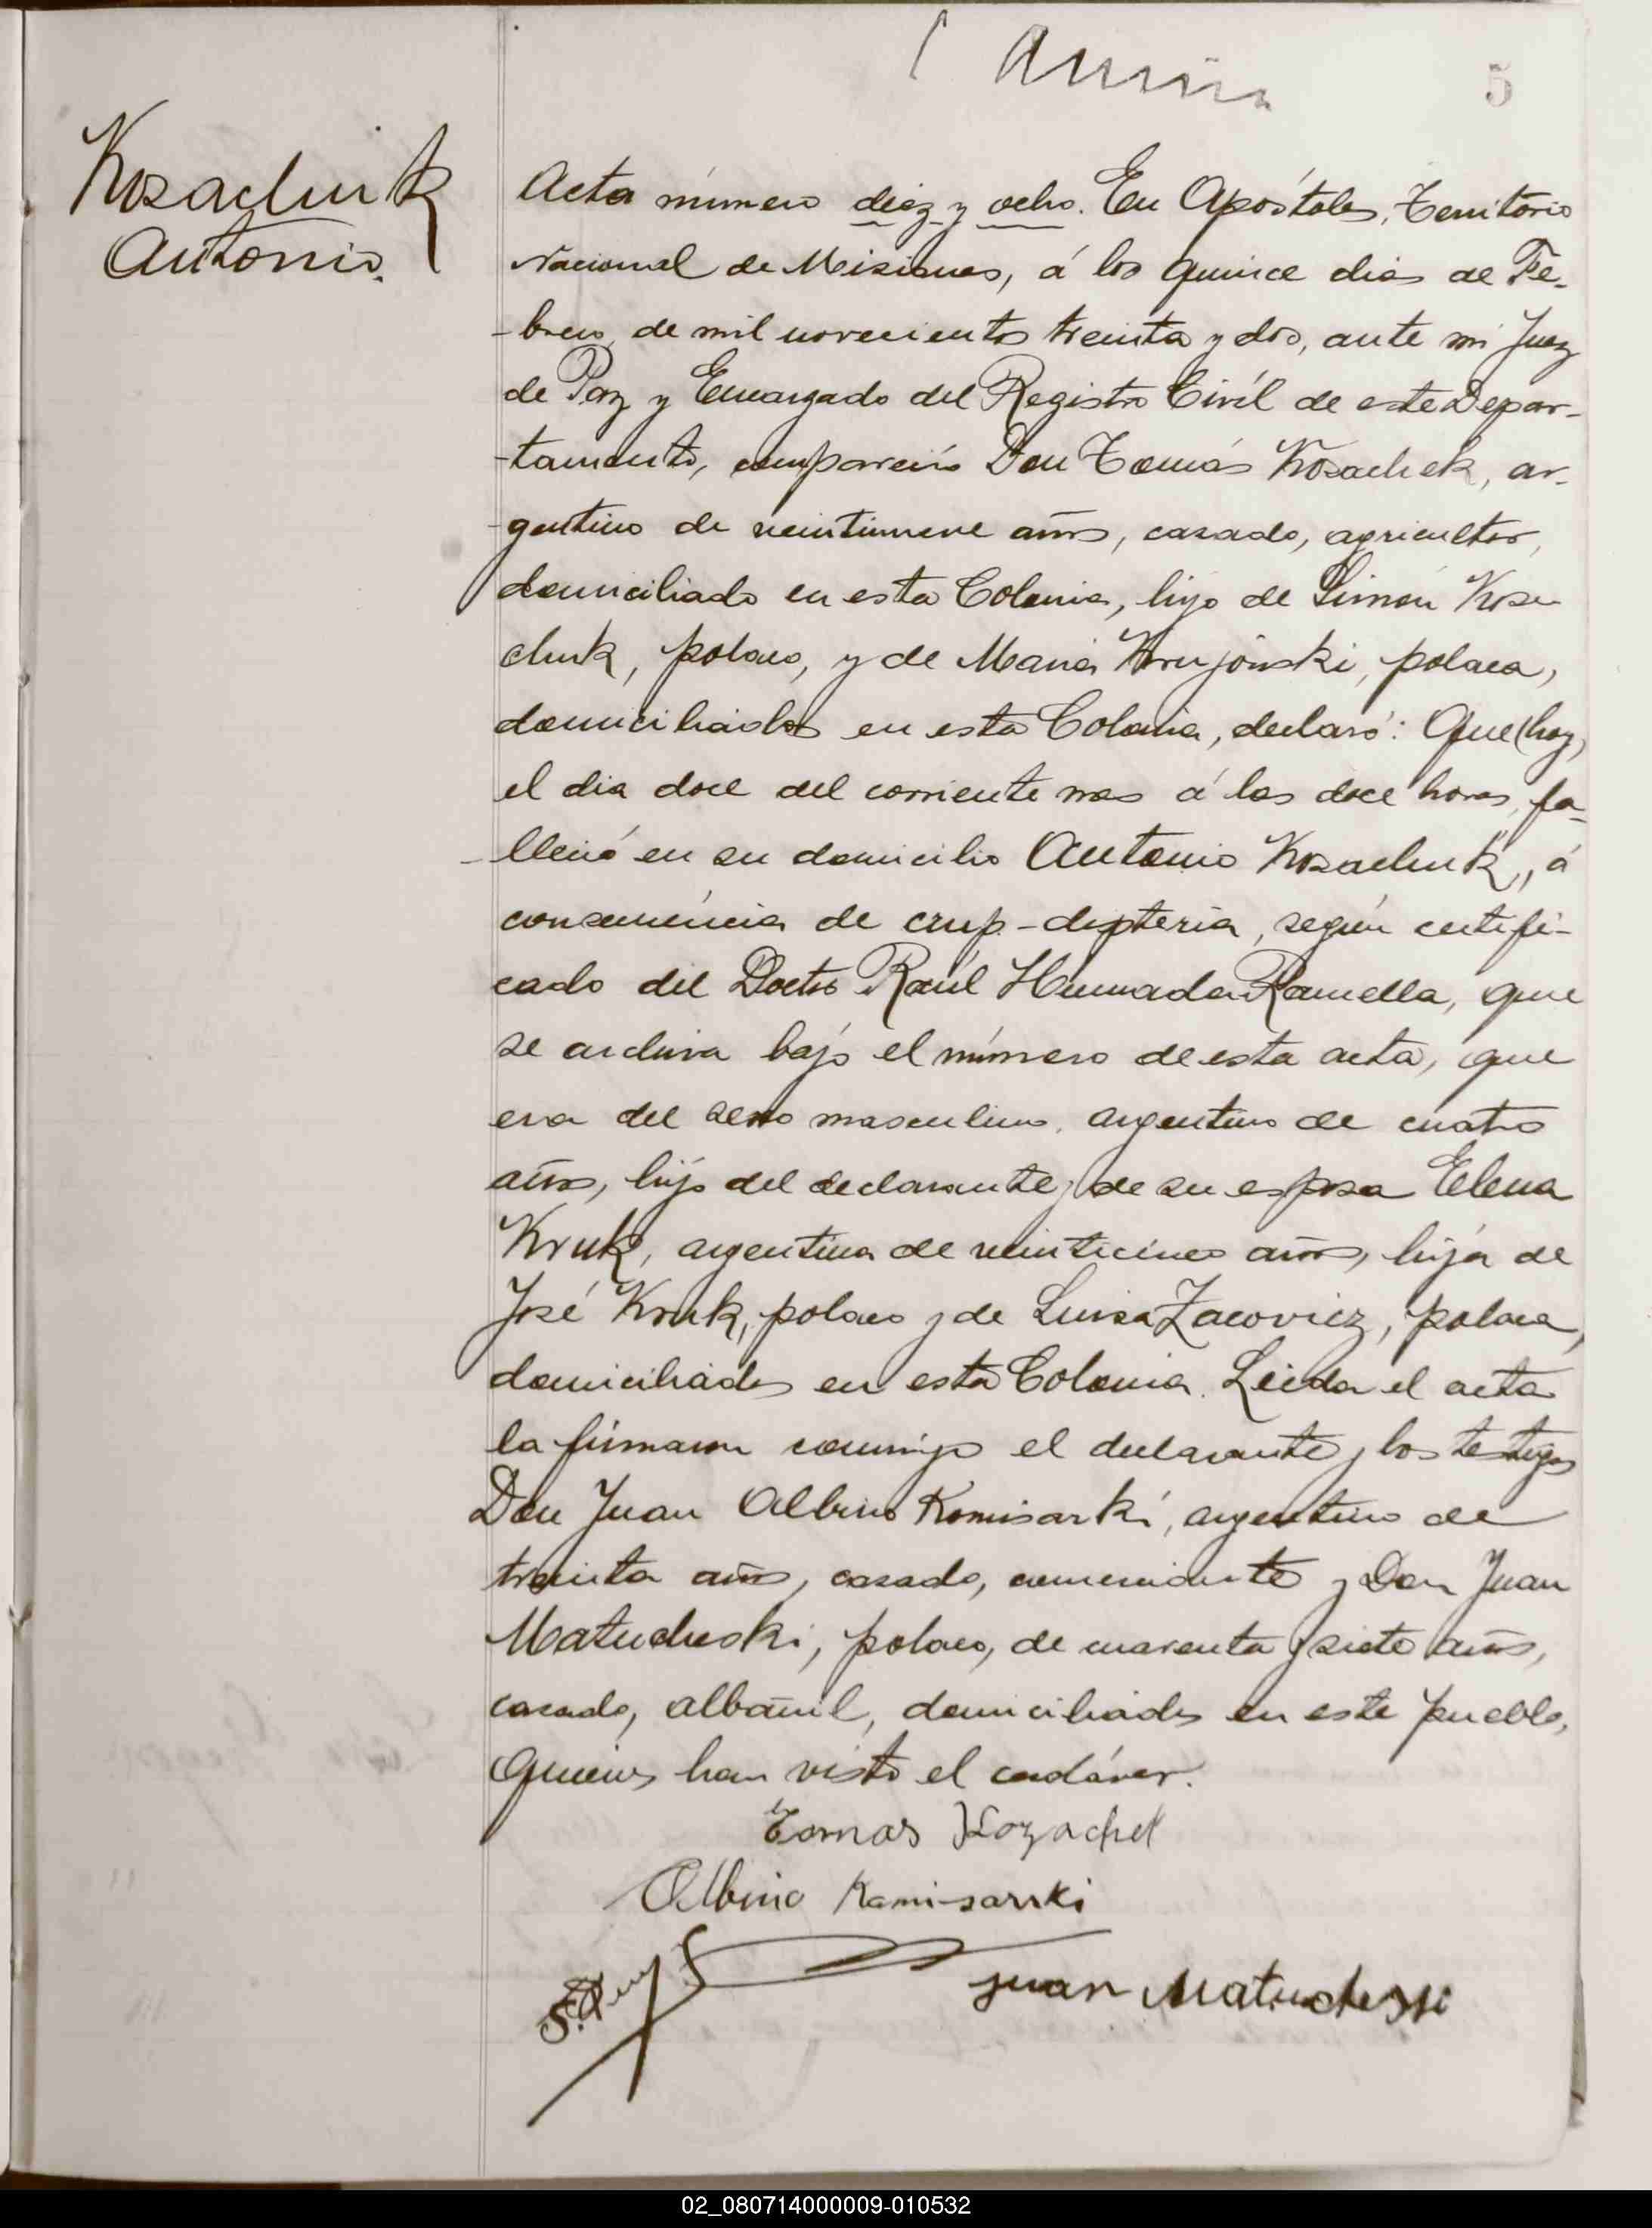 5
Kozachuk
Antonio.
Acta número diez y ocho. En Apóstoles, Territorio
Nacional de Misiones, á los quince dias de Fe-
-brero, de mil novecientos treinta y dos, ante mi Juez
de Paz y Encargado del Registro Civíl de este Depar-
-tamento, compareció Don Tomás Kosachek, ar-
-gentino de veintinueve años, casado, agricultor,
domiciliado en esta Colonia, hijo de Simón Koza
chuk, polaco, y de Maria, polaca,
domiciliados en esta Colonia, declaró: Que (hoy)
el dia doce del corriente mes á las doce horas, fa-
-lleció en su domicilio Antonio Kozachuk, á
consecuencia de crup-dipteria, según certifi-
cado del Doctor Raúl Humada Ramella, que
se archiva bajo el número de esta acta, que
era del sexo masculino, argentino de cuatro
años, hijo del declarante y de su esposa Elena
Kruk, argentina de veinticinco años, hija de
José Kruk, polaco y de Luisa Zacovicz, polaca,
domiciliados en esta Colonia. Leida el acta
la firmaron conmigo el declarante y los testigos
Don Juan Albino Komisarki, argentino de
treinta años, casado, comerciante y Don Juan
Matucheski, polaco, de cuarenta y siete años,
casado, albañil, domiciliados en este pueblo,
quienes han visto el cadáver.
Tomas Kozachek
Albino Kamisarski
Juan Matucheski
02_080714000009-010532